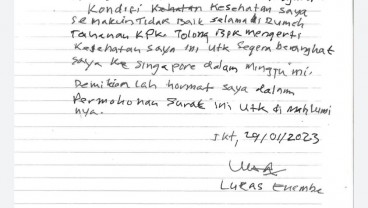 Kondisi Kehatan Kesehatan saya
semakin Tidak Baik selama di Rumah
Tahanan KPK. Tolong BPK mengerti
Kesehatan saya ini utk segera berangkat
saya ke Singapore dalam minggu ini.
Demikian lah hormat saya dalam
Permohonan Surat ini utk di maklumi
nya.
Jkt, 29/01/2023
Lukas Enembe